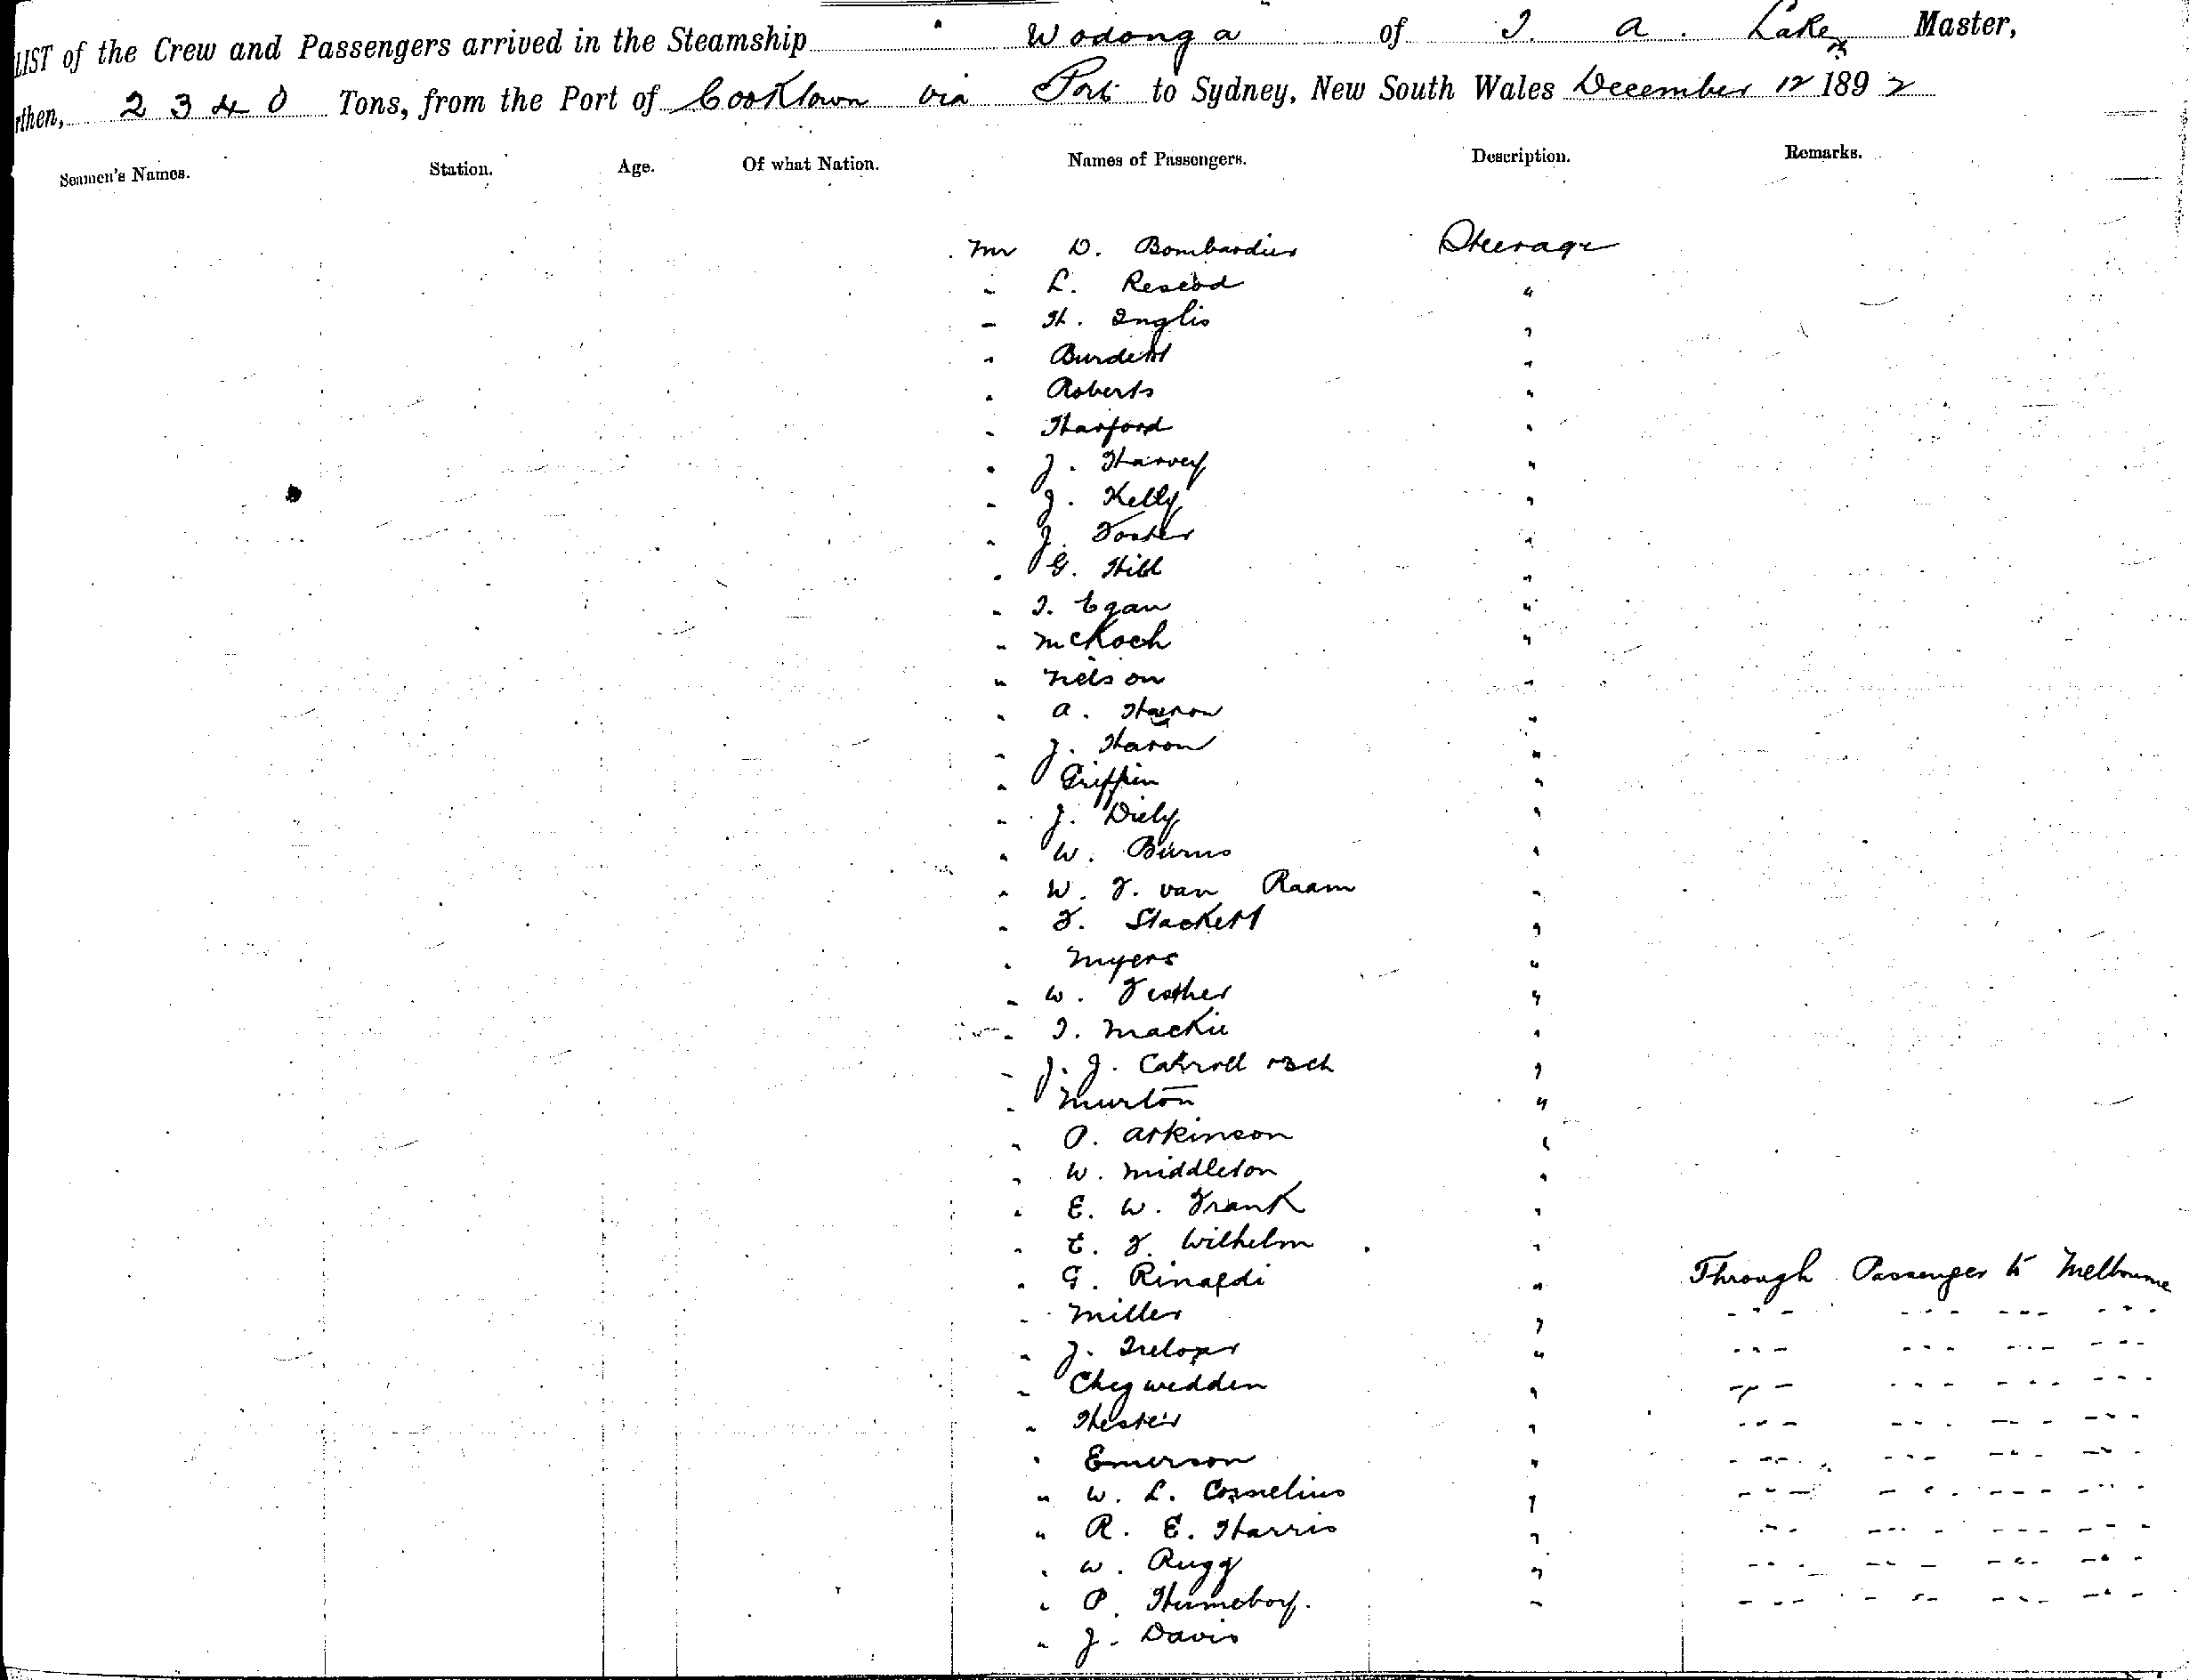 LIST of the Crew and Passengers arrived in the Steamship Wodonga of J. A. Lake Master,
rthen, 2340 Tons, from the Port of Cooktown via Ports to Sydney, New South Wales December 12 1892
Seamen's Names. Station. Age. Of what Nation. Names of Passengers. Description. Remarks.
Mr D. Bombardier Steerage
" L. "
" H. Inglis "
" Burdett "
" Roberts "
" Harford "
" J. Harvey "
" J. Kelly "
" J. Foster "
" G. Hill "
" T. Egan "
" McKoch "
" Nelson "
" A. "
" J. Haron "
" Griffin "
" J. Diely "
" W. Burns "
" W. F. van Raam "
" F. Stackett "
" Myers "
" W. "
" T. Mackie "
" J. J. Carroll "
" Murton "
" P. Atkinson "
" W. Middleton "
" E. W. Frank "
" E. F. Wilhelm "
" G. Rinaldi " Through Passenger to Melbourne
" Miller " " " " "
" J. Treloar " " " " "
" Chegwidden " " " " "
" Hester " " " " "
" Emerson " " " " "
" W. L. Cornelius " " " " "
" R. E. Harris " " " " "
" W. Rugg " " " " "
" P. " " " " "
" J. Davis